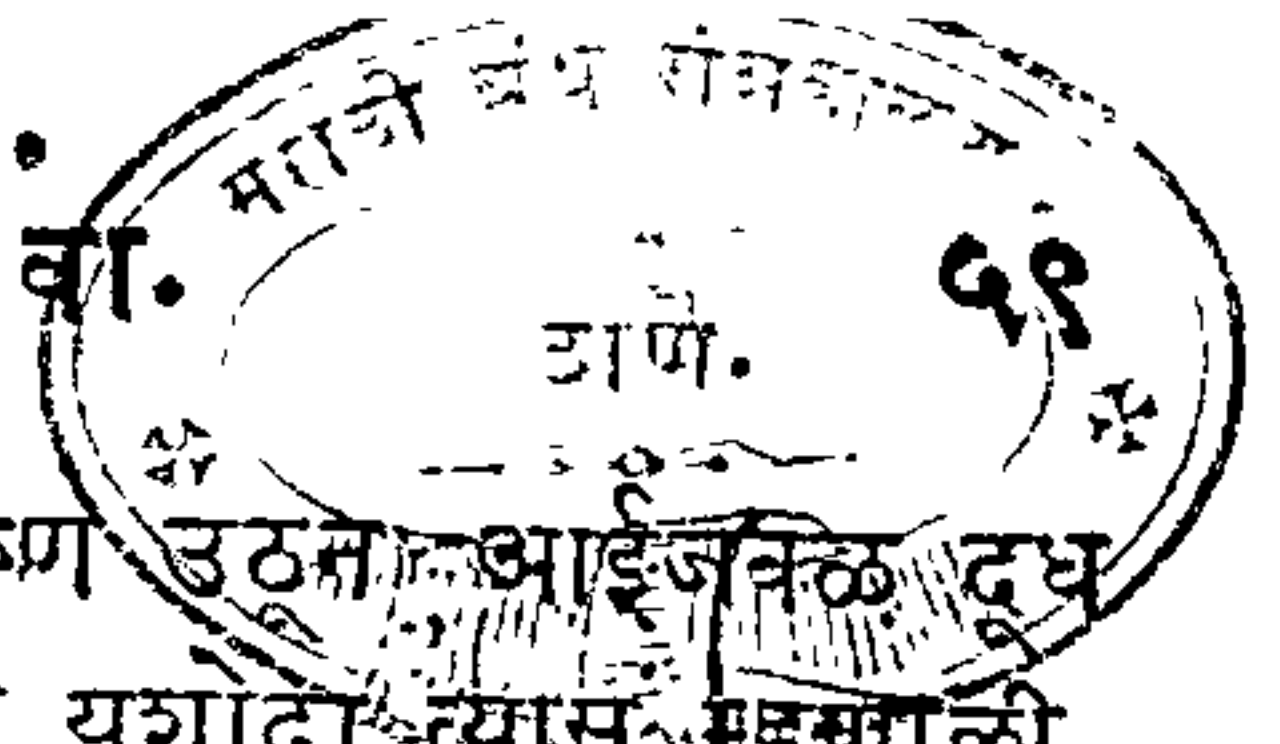 मराठी ग्रंथ संग्रहालय
वा. ५९
ठाणे.
उठून आईजवळ दूध
यशोदा त्यास